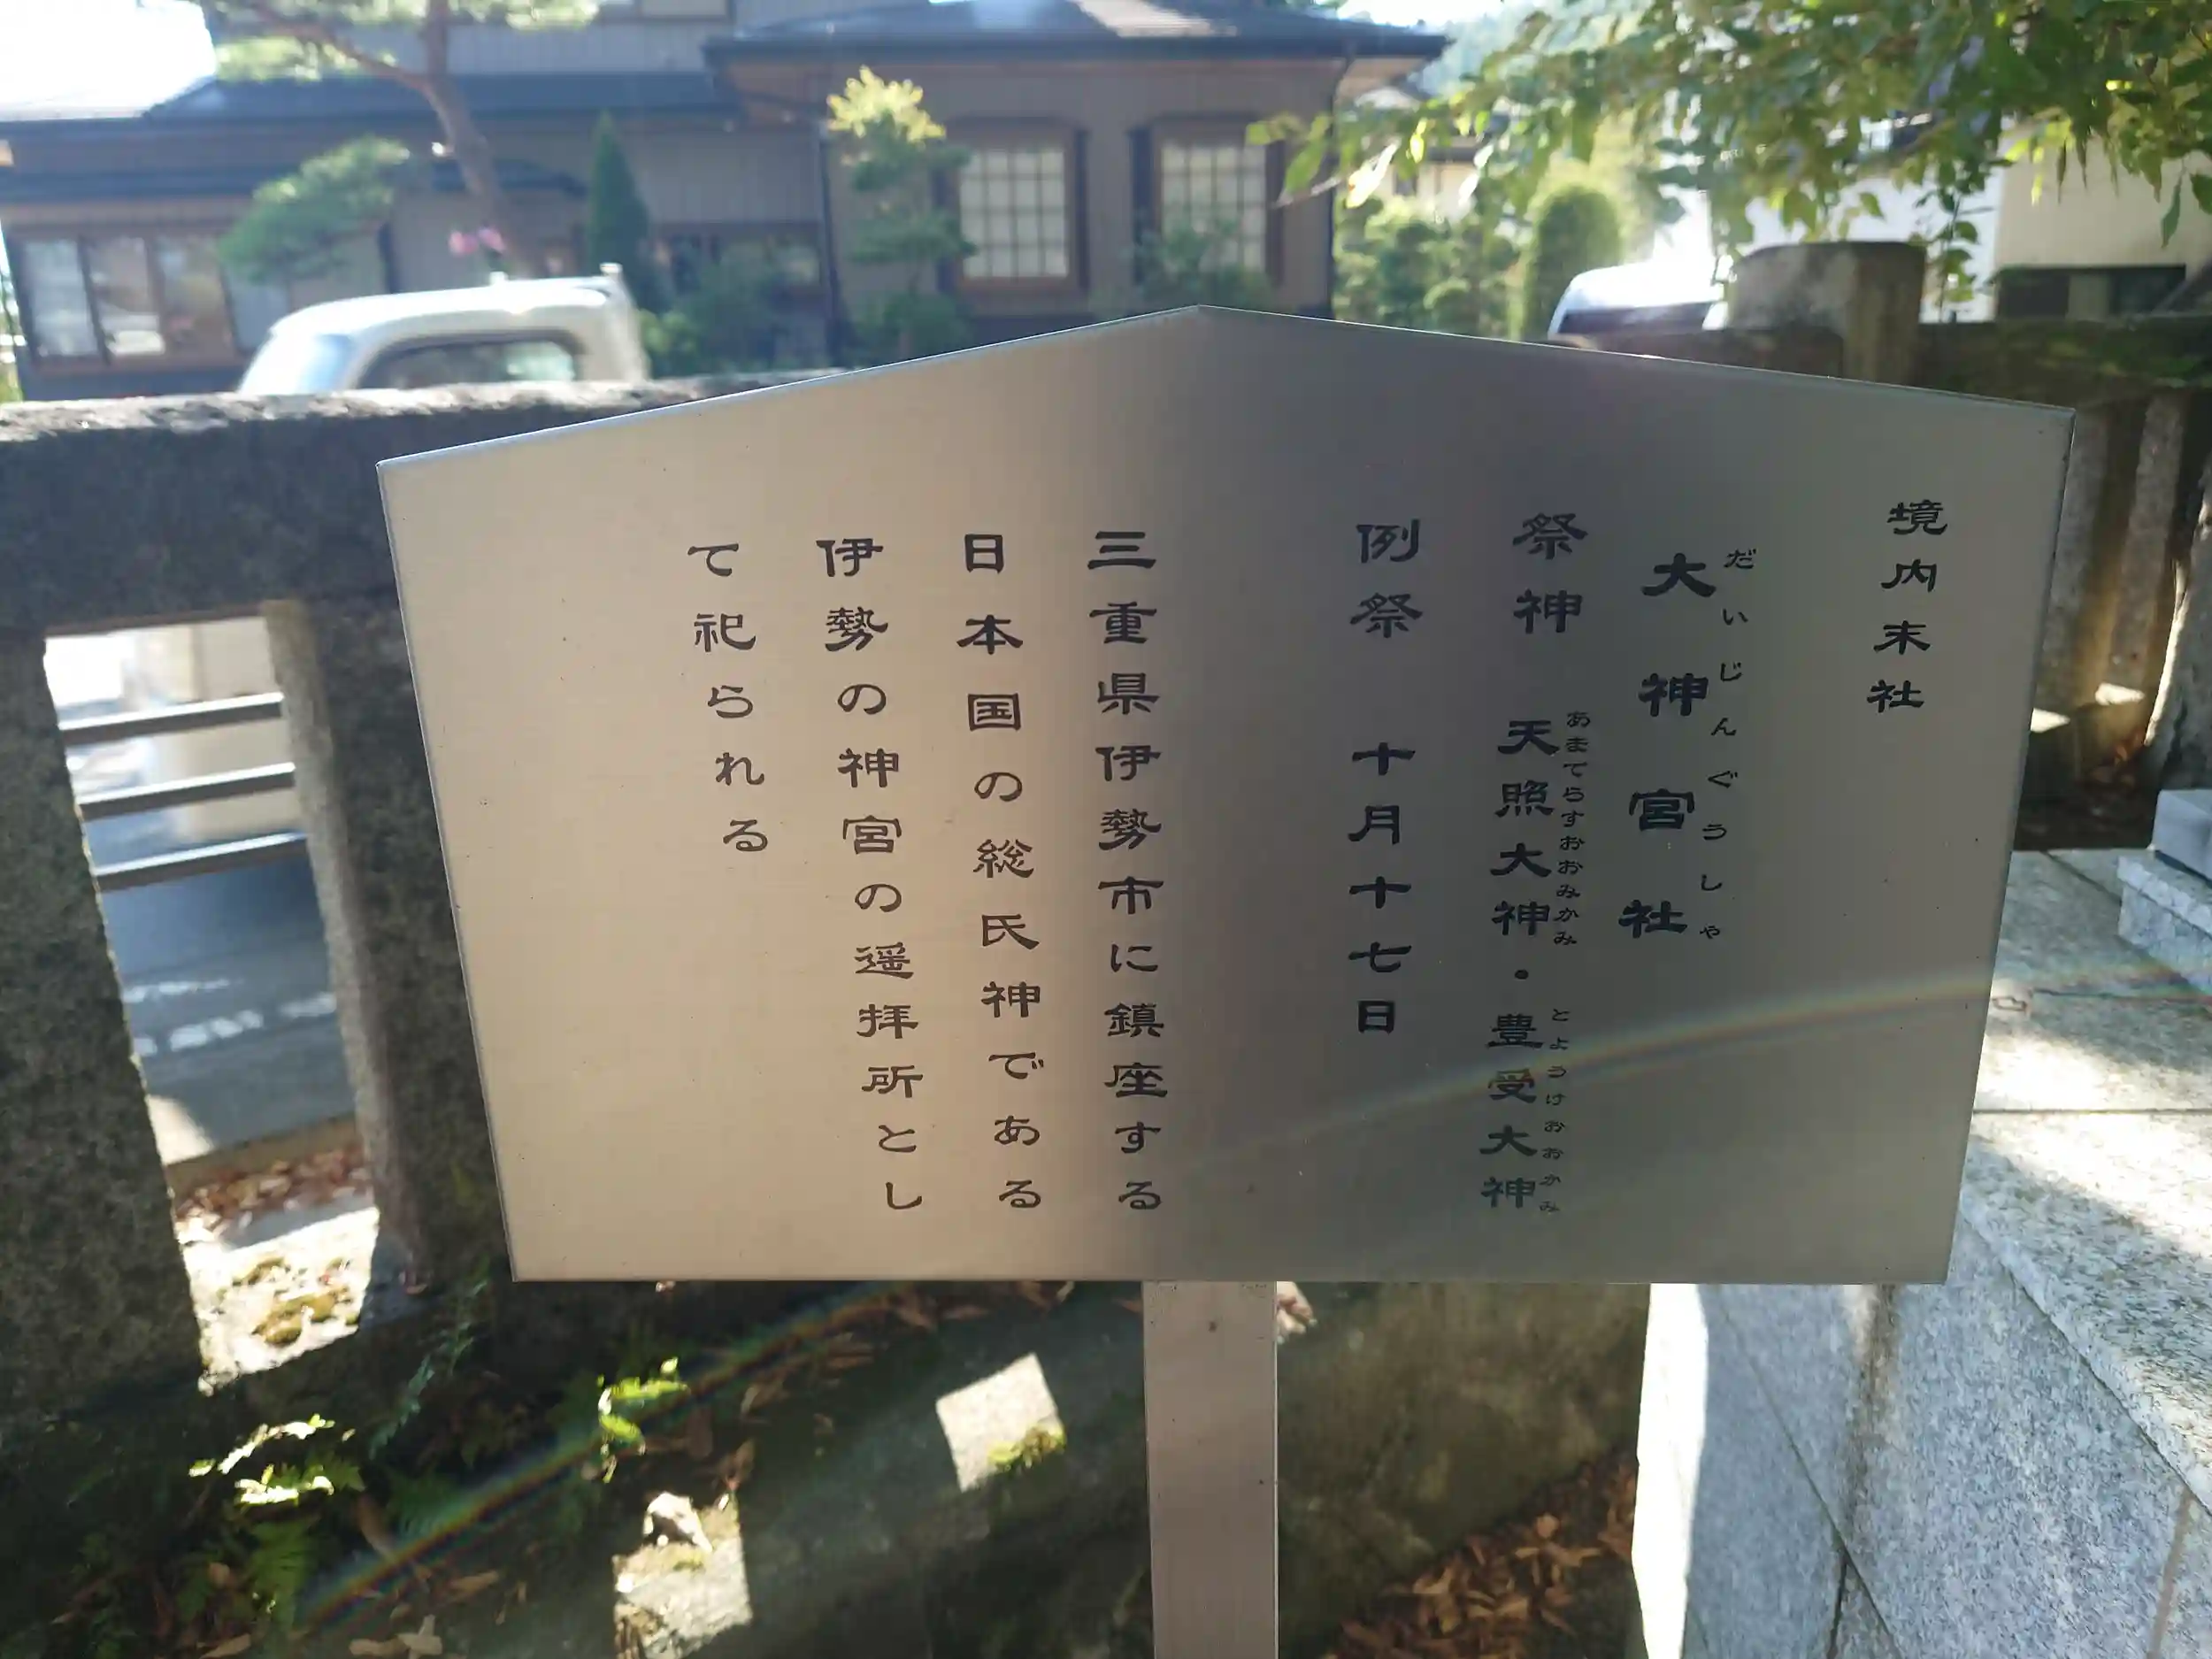 境内末社
大神宮社
だいじんぐうしゃ
祭神 天照大神・豊受大神
あまてらすおおみかみ とようけおおかみ
例祭 十月十七日
三重県伊勢市に鎮座する
日本国の総氏神である
伊勢の神宮の遥拝所とし
て祀られる